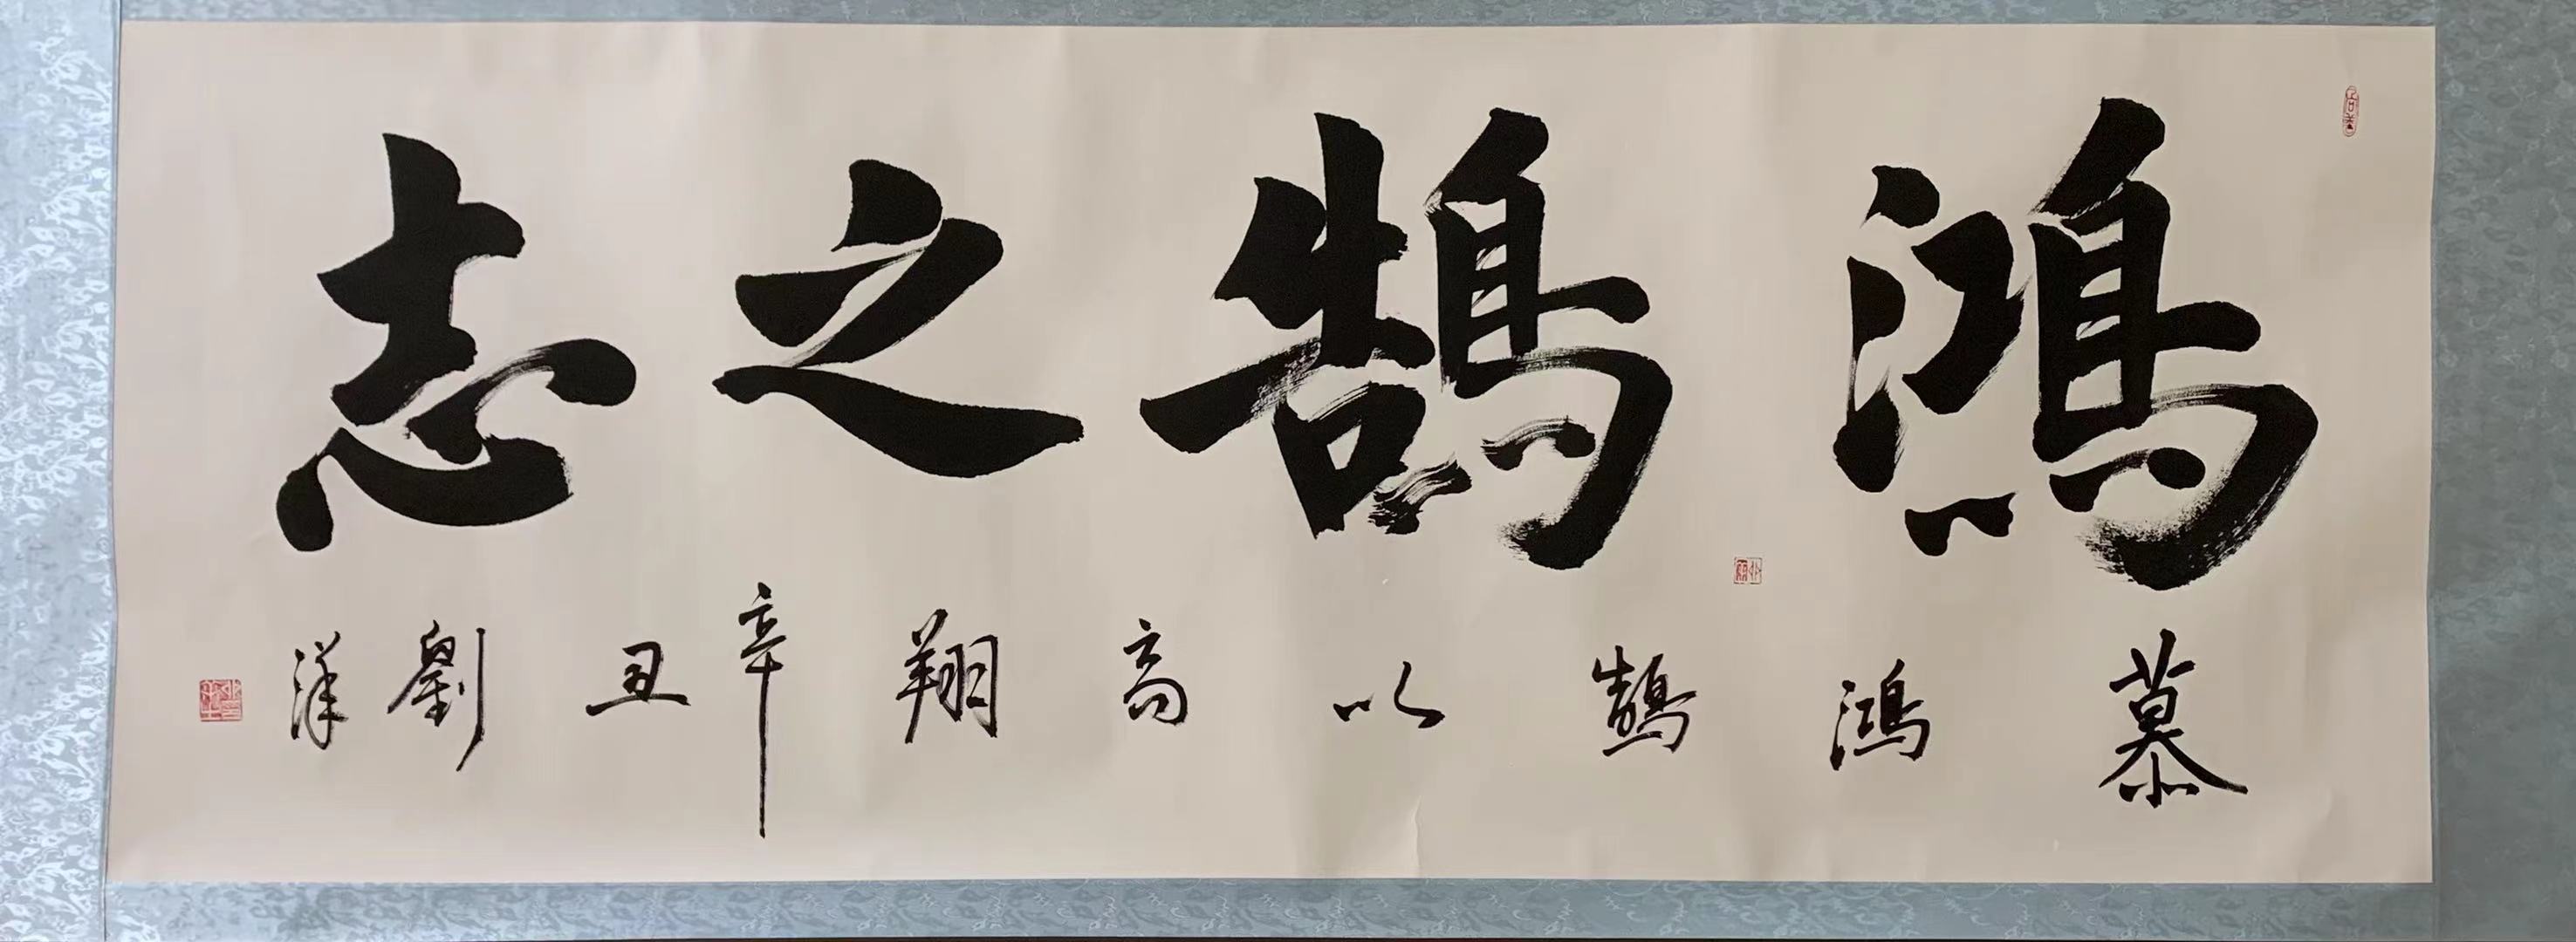 鴻鵠之志
慕鴻鵠以高翔辛丑劉洋